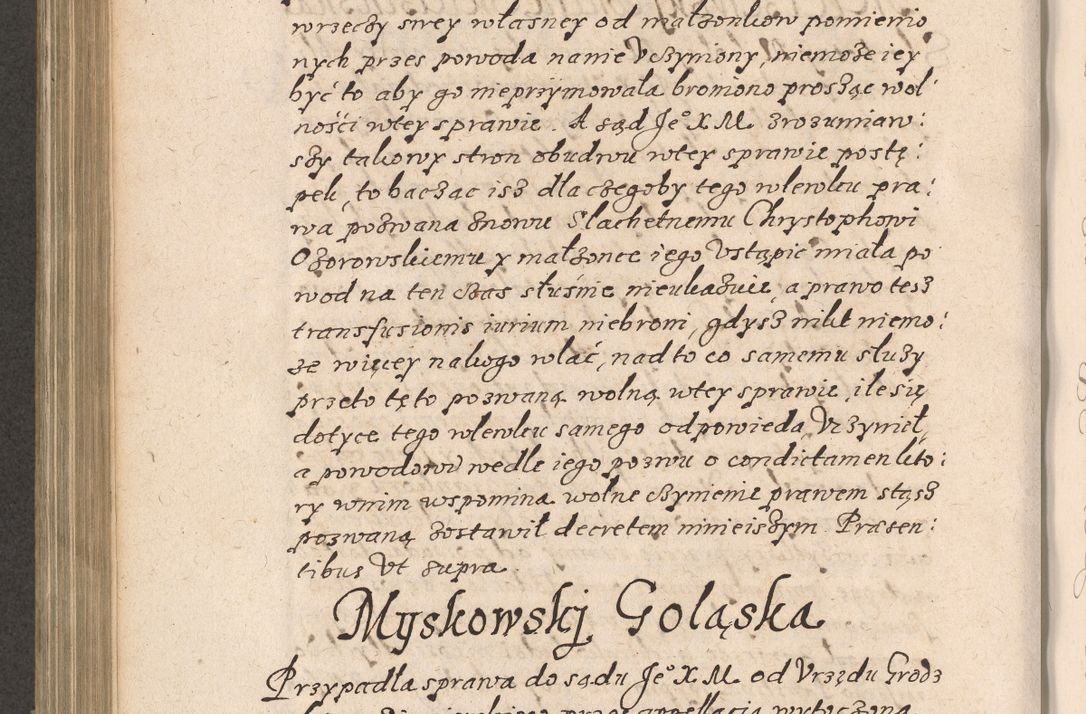 wrzeczy swey własney od małzonkow pomienio
nych przes powoda nanie Vczyniony, niemoze iey
być to aby go nieprzymowała broniono prosząc wol:
ności wtey sprawie. A sąd Je° X M. zrozumiaw:
szy takowy stron obudwu wtey sprawie postę:
pek, to bacząc isz dla czegoby tego wlewku pra:
wa pozwana znowu Slachetnemu Chrystophowi
Ozorowskiemu y małzonce iego Vstąpic miała po
wod na ten czas słusznie nieukazuie, a prawo tesz
transfusionis iurium niebroni, gdysz nikt niemo:
ze więcey nakogo wlać, nad to co samemu słuzy
przeto tęto pozwaną wolną wtey sprawie, ile się
dotyce tego wlewku samego odpowieda Vczynił,
a powodowi wedle iego pozwu o condictamen kto:
ry wnim wspomina wolne czynienie prawem stąsz
pozwaną zostawił decretem ninieiszym. Præsen:
tibus Vt supra.
Myskowskj Goląska
Przypadła sprawa do sądu Je° X M. od Vrzędu Grodz
przes appellacią wytoczona